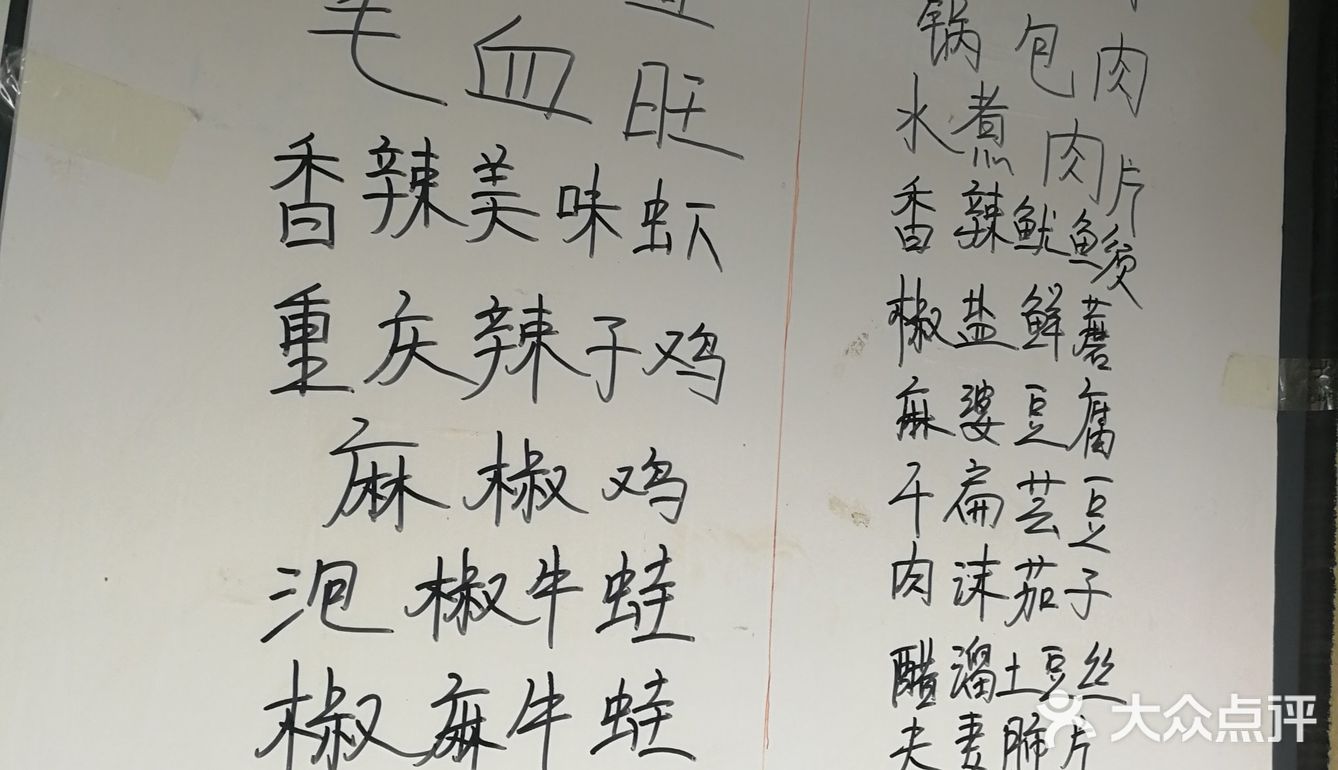 毛血旺
香辣美味虾
重庆辣子鸡
麻椒鸡
泡椒牛蛙
椒麻牛蛙
锅包肉
水煮肉片
香辣鱿鱼须
椒盐鲜蘑
麻婆豆腐
干扁芸豆
肉沫茄子
醋溜土豆丝
夫妻肺片
大众点评